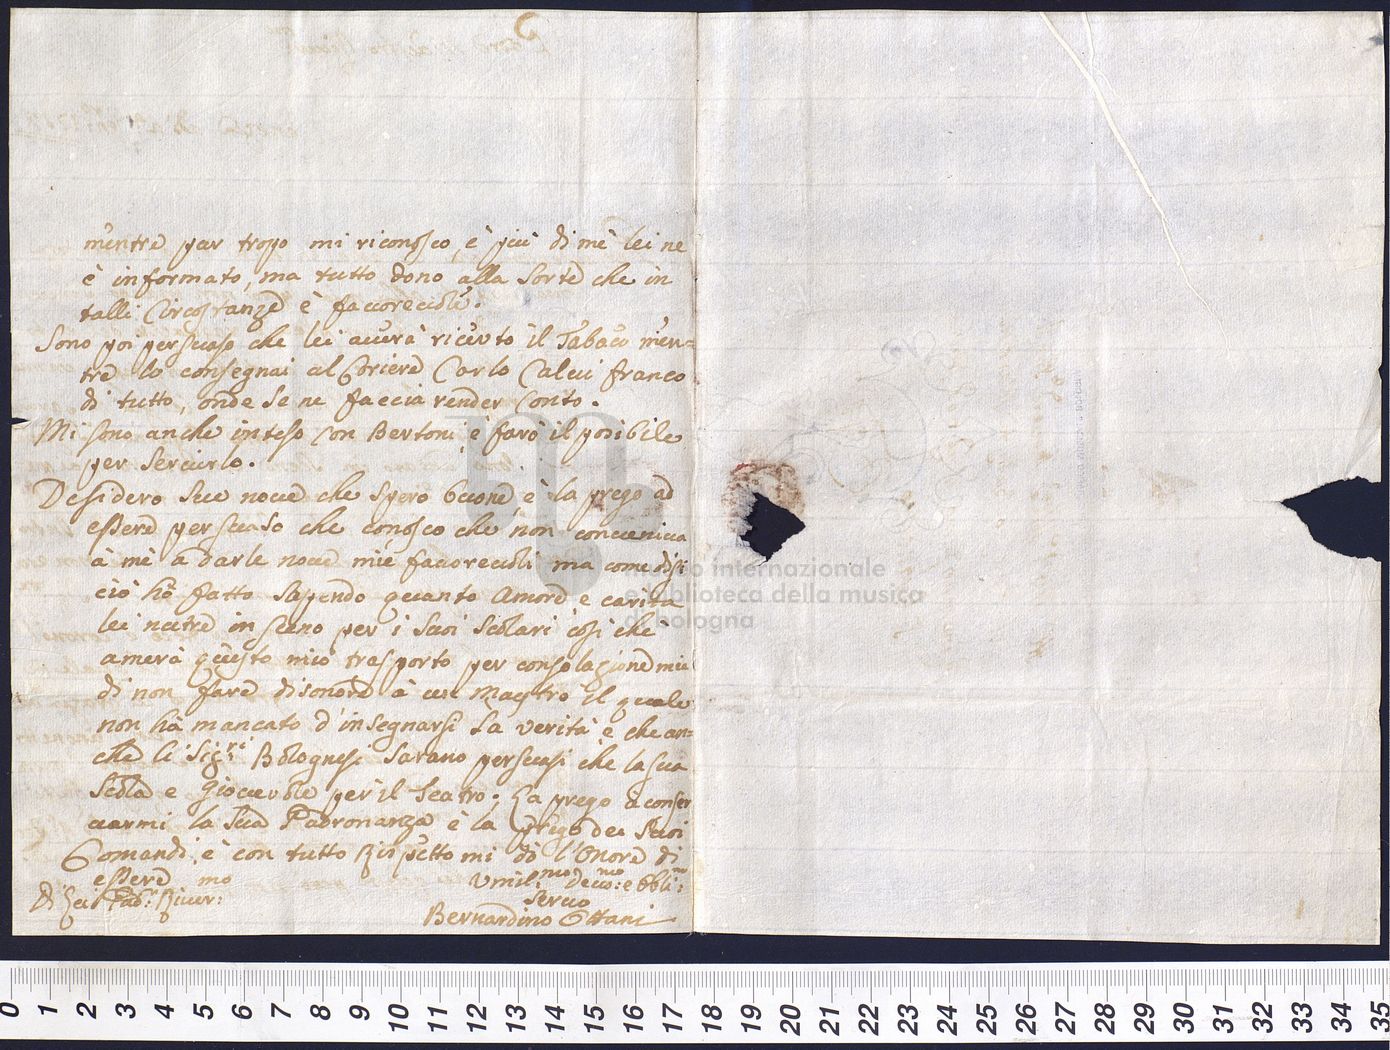 mentre pur tropo mi riconosco, è più di mè lei ne
è informato, ma tutto dono alla sorte che in
talli Circostanze è favorevole.
Sono poi persuaso che lei averà riceuto il Tabaco men=
tre lo consegnai al Coriere Carlo Calvi franco
di tutto, onde se ne faccia render Conto.
Mi sono anche inteso con Bertoni, e farò il posibile
per servirlo.
Desidero sue nove che spero buone è la prego ad
essere persuaso che conosco che non conveniva
à mè a darle nove mie favorevoli ma come disi
ciò hò fatto sapendo quanto Amore e carita
lei nutre in seno per i suoi scolari così che
amerà questo mio trasporto per consolazione mia
di non fare disonore à un Maestro il quale
non hà mancato d'insegnarsi la verità e che an=
che li Sig:ri Bolognesi sarano persuasi che la sua
scola e Giovevole per il Teatro; La prego à conser
varmi la sua Padronanza è la prego dei suoi
Comandi, è con tutto Rispetto mi dò l'Onore di
essere mo
Di Lei Pad: River:
Umil:mo Devo:mo e Obli:mo
Servo
Bernardino Ottani
museo internazionale
e biblioteca della musica
di bologna
0 1 2 3 4 5 6 7 8 9 10 11 12 13 14 15 16 17 18 19 20 21 22 23 24 25 26 27 28 29 30 31 32 33 34 35